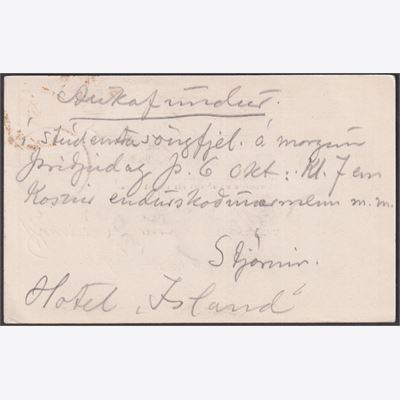 Aukafundur.
í stúdentasöngfjel. á morgun
þriðjudag þ. 6 okt: Kl. 7 em
Kosnir endurskoðunarmenn m.m.
Stjórnin.
Hotel „Island"